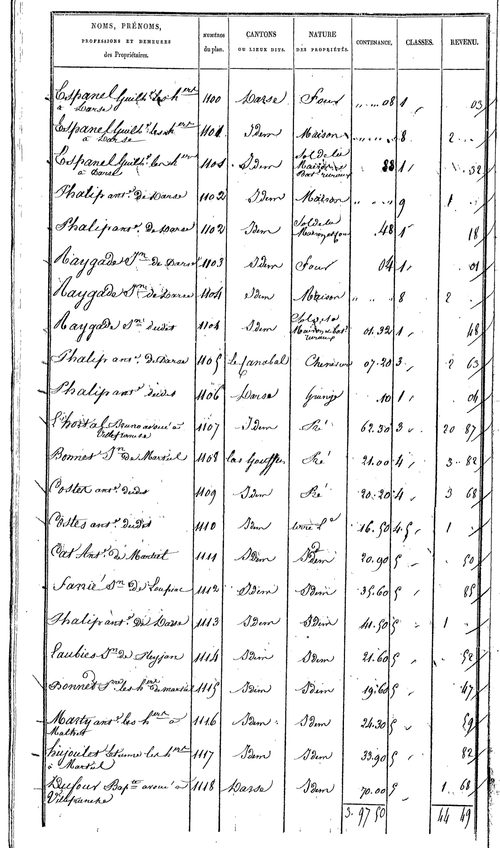 NOMS, PRÉNOMS, PROFESSIONS ET DEMEURES des Propriétaires. NUMÉROS du plan. CANTONS OU LIEUX DITS. NATURE DES PROPRIÉTÉS. CONTENANCE. CLASSES. REVENU.
Espanel Guilh.e les hers à Darse 1100 Darse Four 08 1 03
Espanel Guilh.e les hers à Darse 1101 Idem Maison 8 2
Espanel Guilh.e les hers à Darse 1101 Idem Sol de la Maison 88 1 32
Phalip ant.e de Darse 1102 Idem Maison 9 1
Phalip ant.e de Darse 1102 Idem Sol de la Maison 48 1 18
Raygade Jn de Darse 1103 Idem Four 04 1 01
Raygade Jn de Darse 1104 Idem Maison 8 2
Raygade Jn dudit 1104 Idem Sol de la Maison 01.32 1 48
Phalip ant.e de Darse 1105 Le Canabal 07.20 3 2 63
Phalip ant.e dudit 1106 Darse Grange 10 1 04
Lhortal Bruno avoué à Villefranche 1107 Idem Pré 62.30 3 20 87
Bonnet Jn de Martiel 1108 Las Gouttes Pré 21.00 4 3 82
Costes ant.e dudit 1109 Idem Pré 20.20 4 3 68
Costes ant.e dudit 1110 Idem terre L.e 16.50 4.5 1
Cat Ant.e de Martiel 1111 Idem Idem 20.90 5 50
Jn de Loupiac 1112 Idem Idem 35.60 5 85
Phalip ant.e de Darse 1113 Idem Idem 41.50 5 1
Laubies Jn de 1114 Idem Idem 21.60 5 52
Bonnet les hers de martiel 1115 Idem Idem 19.60 5 47
Marty ant.e les hers à 1116 Idem Idem 24.30 5 59
Etienne les hers à Martiel 1117 Idem Idem 33.90 5 82
Dufour Bap.te avoué à Villefranche 1118 Darse Idem 70.00 5 1 68
3. 97 50 44 49